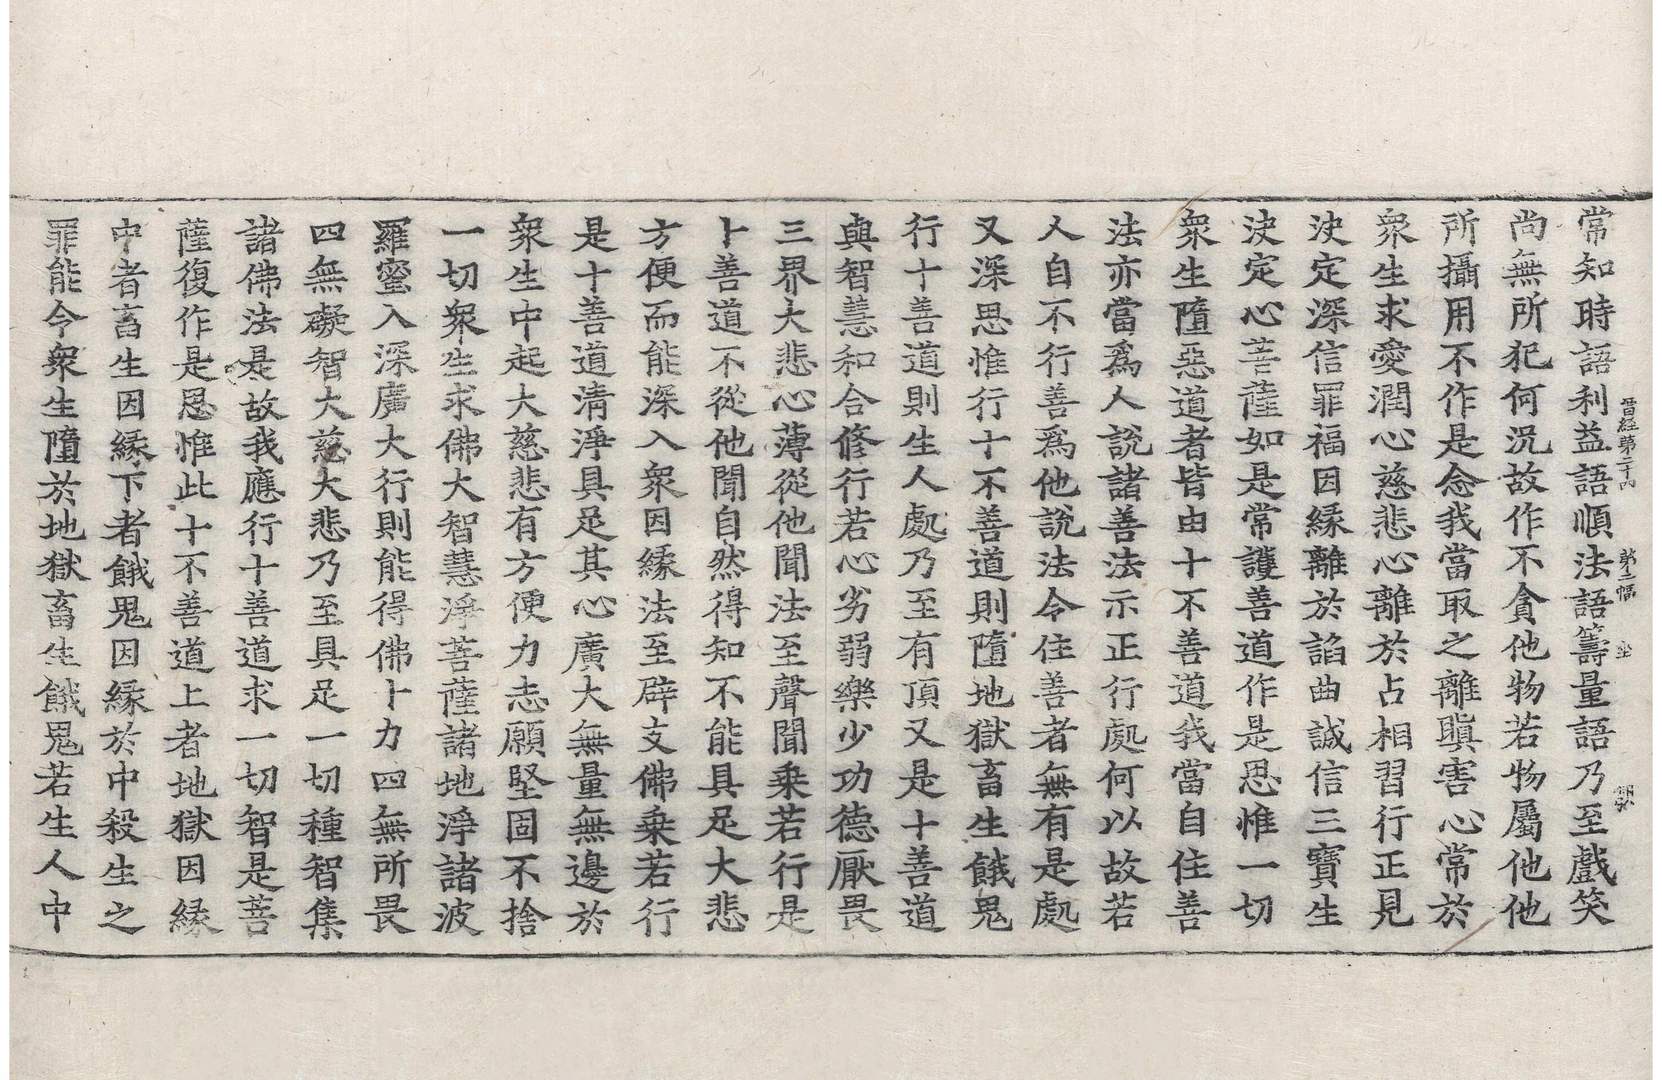 常知時語利益語順法語籌量語乃至戲笑
尚無所犯何況故作不貪他物若物屬他他
所攝用不作是念我當取之離瞋害心常於
衆生求愛潤心慈悲心離於占相習行正見
決定深信罪福因緣離於諂曲誠信三寶生
決定心菩薩如是常護善道作是思惟一切
衆生墮惡道者皆由十不善道我當自住善
法亦當爲人說諸善法示正行處何以故若
人自不行善爲他說法令住善者無有是處
又深思惟行十不善道則墮地獄畜生餓鬼
行十善道則生人處乃至有頂又是十善道
與智慧和合修行若心劣弱樂少功德厭畏
三界大悲心薄從他聞法至聲聞乗若行是
十善道不從他聞自然得知不能具足大悲
方便而能深入衆因緣法至辟支佛乗若行
是十善道清淨具足其心廣大無量無邊於
衆生中起大慈悲有方便力志願堅固不捨
一切衆生求佛大智慧淨菩薩諸地淨諸波
羅蜜入深廣大行則能得佛十力四無所畏
四無礙智大慈大悲乃至具足一切種智集
諸佛法是故我應行十善道求一切智是菩
薩復作是思惟此十不善道上者地獄因緣
中者畜生因緣下者餓鬼因緣於中殺生之
罪能令衆生墮於地獄畜生餓鬼若生人中